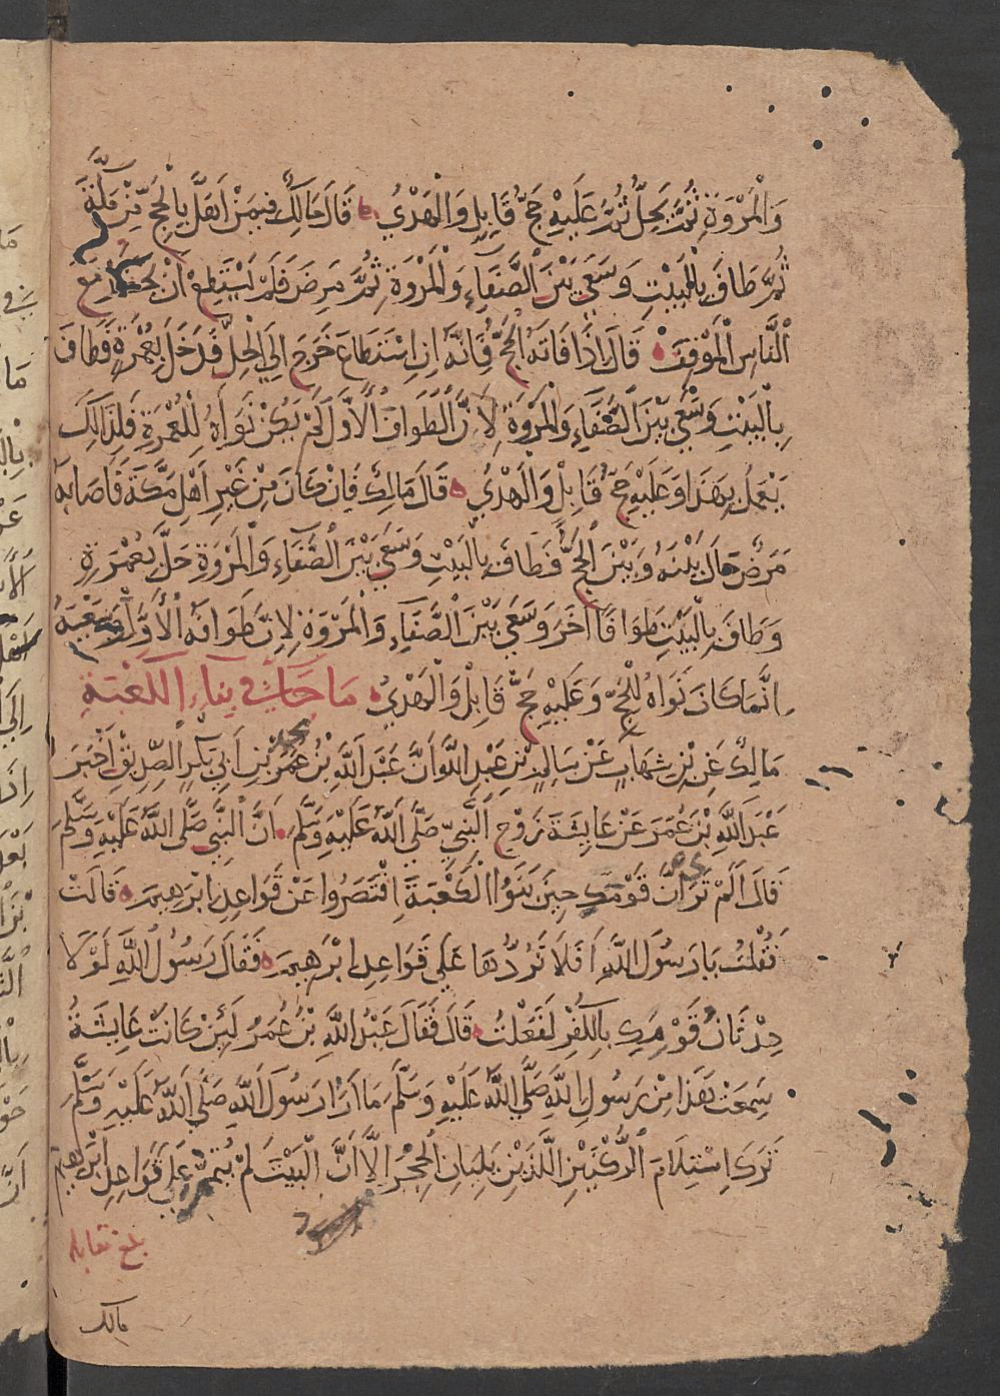 وَالْمَرْوَةِ ثُمَّ يَحِلُّ ثُمَّ عَلَيْهِ حَجُّ قَابِلٍ وَالْهَدْيُ قَالَ مَالِكٌ فِيمَنْ اَهَلَّ بِالْحَجِّ مِنْ مَكَّةَ
ثُمَّ طَافَ بِالْبَيْتِ وَسَعَى بَيْنَ الصَّفَاءِ وَالْمَرْوَةِ ثُمَّ مَرِضَ فَلَمْ يَسْتَطِعْ اَنْ يَحْضُرَ مَعَ
النَّاسِ الْمَوْقِفَ قَالَ اِذَا فَاتَهُ الْحَجُّ فَاِنَّهُ اِنِ اسْتَطَاعَ خَرَجَ اِلَى الْحِلِّ فَدَخَلَ بِعُمْرَةٍ فَطَافَ
بِالْبَيْتِ وَسَعَى بَيْنَ الصَّفَاءِ وَالْمَرْوَةِ لِاَنَّ الطَّوَافَ الْاَوَّلَ لَمْ يَكُنْ نَوَاهُ لِلْعُمْرَةِ فَلِذَالِكَ
يَعْمَلُ بِهَذَا وَعَلَيْهِ حَجُّ قَابِلٍ وَالْهَدْيُ قَالَ مَالِكٌ فَاِنْ كَانَ مِنْ غَيْرِ اَهْلِ مَكَّةَ فَاَصَابَهُ
مَرَضٌ حَالَ بَيْنَهُ وَبَيْنَ الْحَجِّ فَطَافَ بِالْبَيْتِ وَسَعَى بَيْنَ الصَّفَاءِ وَالْمَرْوَةِ حَلَّ بِعُمْرَةٍ
وَطَافَ بِالْبَيْتِ طَوَافًا اٰخَرَ وَسَعَى بَيْنَ الصَّفَاءِ وَالْمَرْوَةِ لِاَنَّ طَوَافَهُ الْاَوَّلَ وَسَعْيَهُ
اِنَّمَا كَانَ نَوَاهُ لِلْحَجِّ وَعَلَيْهِ حَجُّ قَابِلٍ وَالْهَدْيُ مَا جَاءَ فِي بِنَاءِ الْكَعْبَةِ
مَالِكٌ عَنِ ابْنِ شِهَابٍ عَنْ سَالِمِ بْنِ عَبْدِ اللَّهِ اَنَّ عَبْدَ اللَّهِ بْنَ مُحَمَّدِ بْنِ اَبِي بَكْرٍ الصِّدِّيقِ اَخْبَرَ
عَبْدَ اللَّهِ بْنَ عُمَرَ عَنْ عَايِشَةَ زَوْجِ النَّبِيِّ صَلَّى اللَّهُ عَلَيْهِ وَسَلَّمَ اَنَّ النَّبِيَّ صَلَّى اللَّهُ عَلَيْهِ وَسَلَّمَ
قَالَ اَلَمْ تَرَيْ اَنَّ قَوْمَكِ حِينَ بَنَوُا الْكَعْبَةَ اقْتَصَرُوا عَنْ قَوَاعِدِ اِبْرَهِيمَ قَالَتْ
فَقُلْتُ يَا رَسُولَ اللَّهِ اَفَلَا تَرُدُّهَا عَلَى قَوَاعِدِ اِبْرَهِيمَ فَقَالَ رَسُولُ اللَّهِ لَوْلَا
حِدْثَانُ قَوْمِكِ بِالْكُفْرِ لَفَعَلْتُ قَالَ فَقَالَ عَبْدُ اللَّهِ بْنُ عُمَرَ لَئِنْ كَانَتْ عَايِشَةُ
سَمِعَتْ هَذَا مِنْ رَسُولِ اللَّهِ صَلَّى اللَّهُ عَلَيْهِ وَسَلَّمَ مَا اَرَا رَسُولَ اللَّهِ صَلَّى اللَّهُ عَلَيْهِ وَسَلَّمَ
تَرَكَ اسْتِلَامَ الرُّكْنَيْنِ اللَّذَيْنِ يَلِيَانِ الْحِجْرَ اِلَّا اَنَّ الْبَيْتَ لَمْ يُتَمَّ عَلَى قَوَاعِدِ اِبْرَاهِيمَ
بلغ مقابلة
مالك